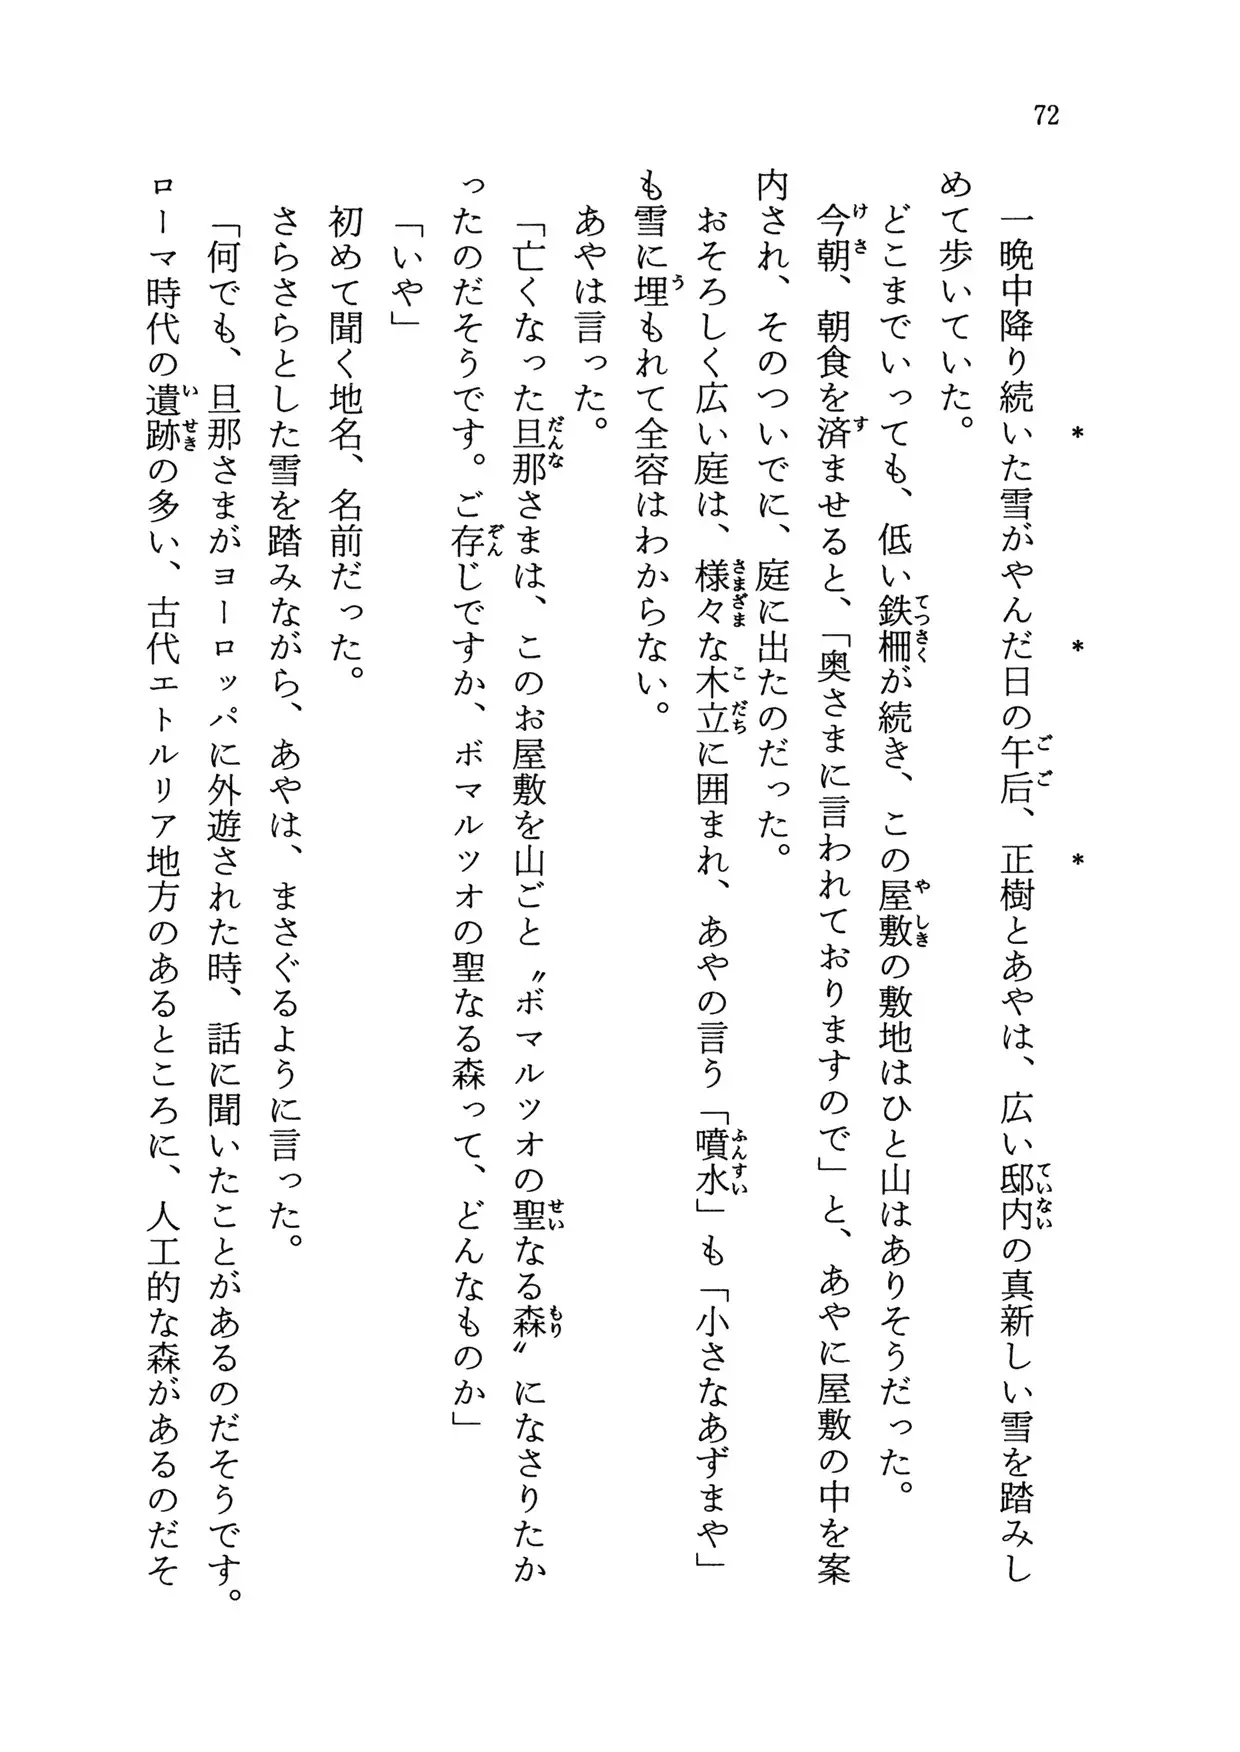 72
* * *
一晩中降り続いた雪がやんだ日の午后、正樹とあやは、広い邸内の真新しい雪を踏みし
めて歩いていた。
どこまでいっても、低い鉄柵が続き、この屋敷の敷地はひと山はありそうだった。
今朝、朝食を済ませると、「奥さまに言われておりますので」と、あやに屋敷の中を案
内され、そのついでに、庭に出たのだった。
おそろしく広い庭は、様々な木立に囲まれ、あやの言う「噴水」も「小さなあずまや」
も雪に埋もれて全容はわからない。
あやは言った。
「亡くなった旦那さまは、このお屋敷を山ごと〝ボマルツオの聖なる森〟になさりたか
ったのだそうです。ご存じですか、ボマルツオの聖なる森って、どんなものか」
「いや」
初めて聞く地名、名前だった。
さらさらとした雪を踏みながら、あやは、まさぐるように言った。
「何でも、旦那さまがヨーロッパに外遊された時、話に聞いたことがあるのだそうです。
ローマ時代の遺跡の多い、古代エトルリア地方のあるところに、人工的な森があるのだそ